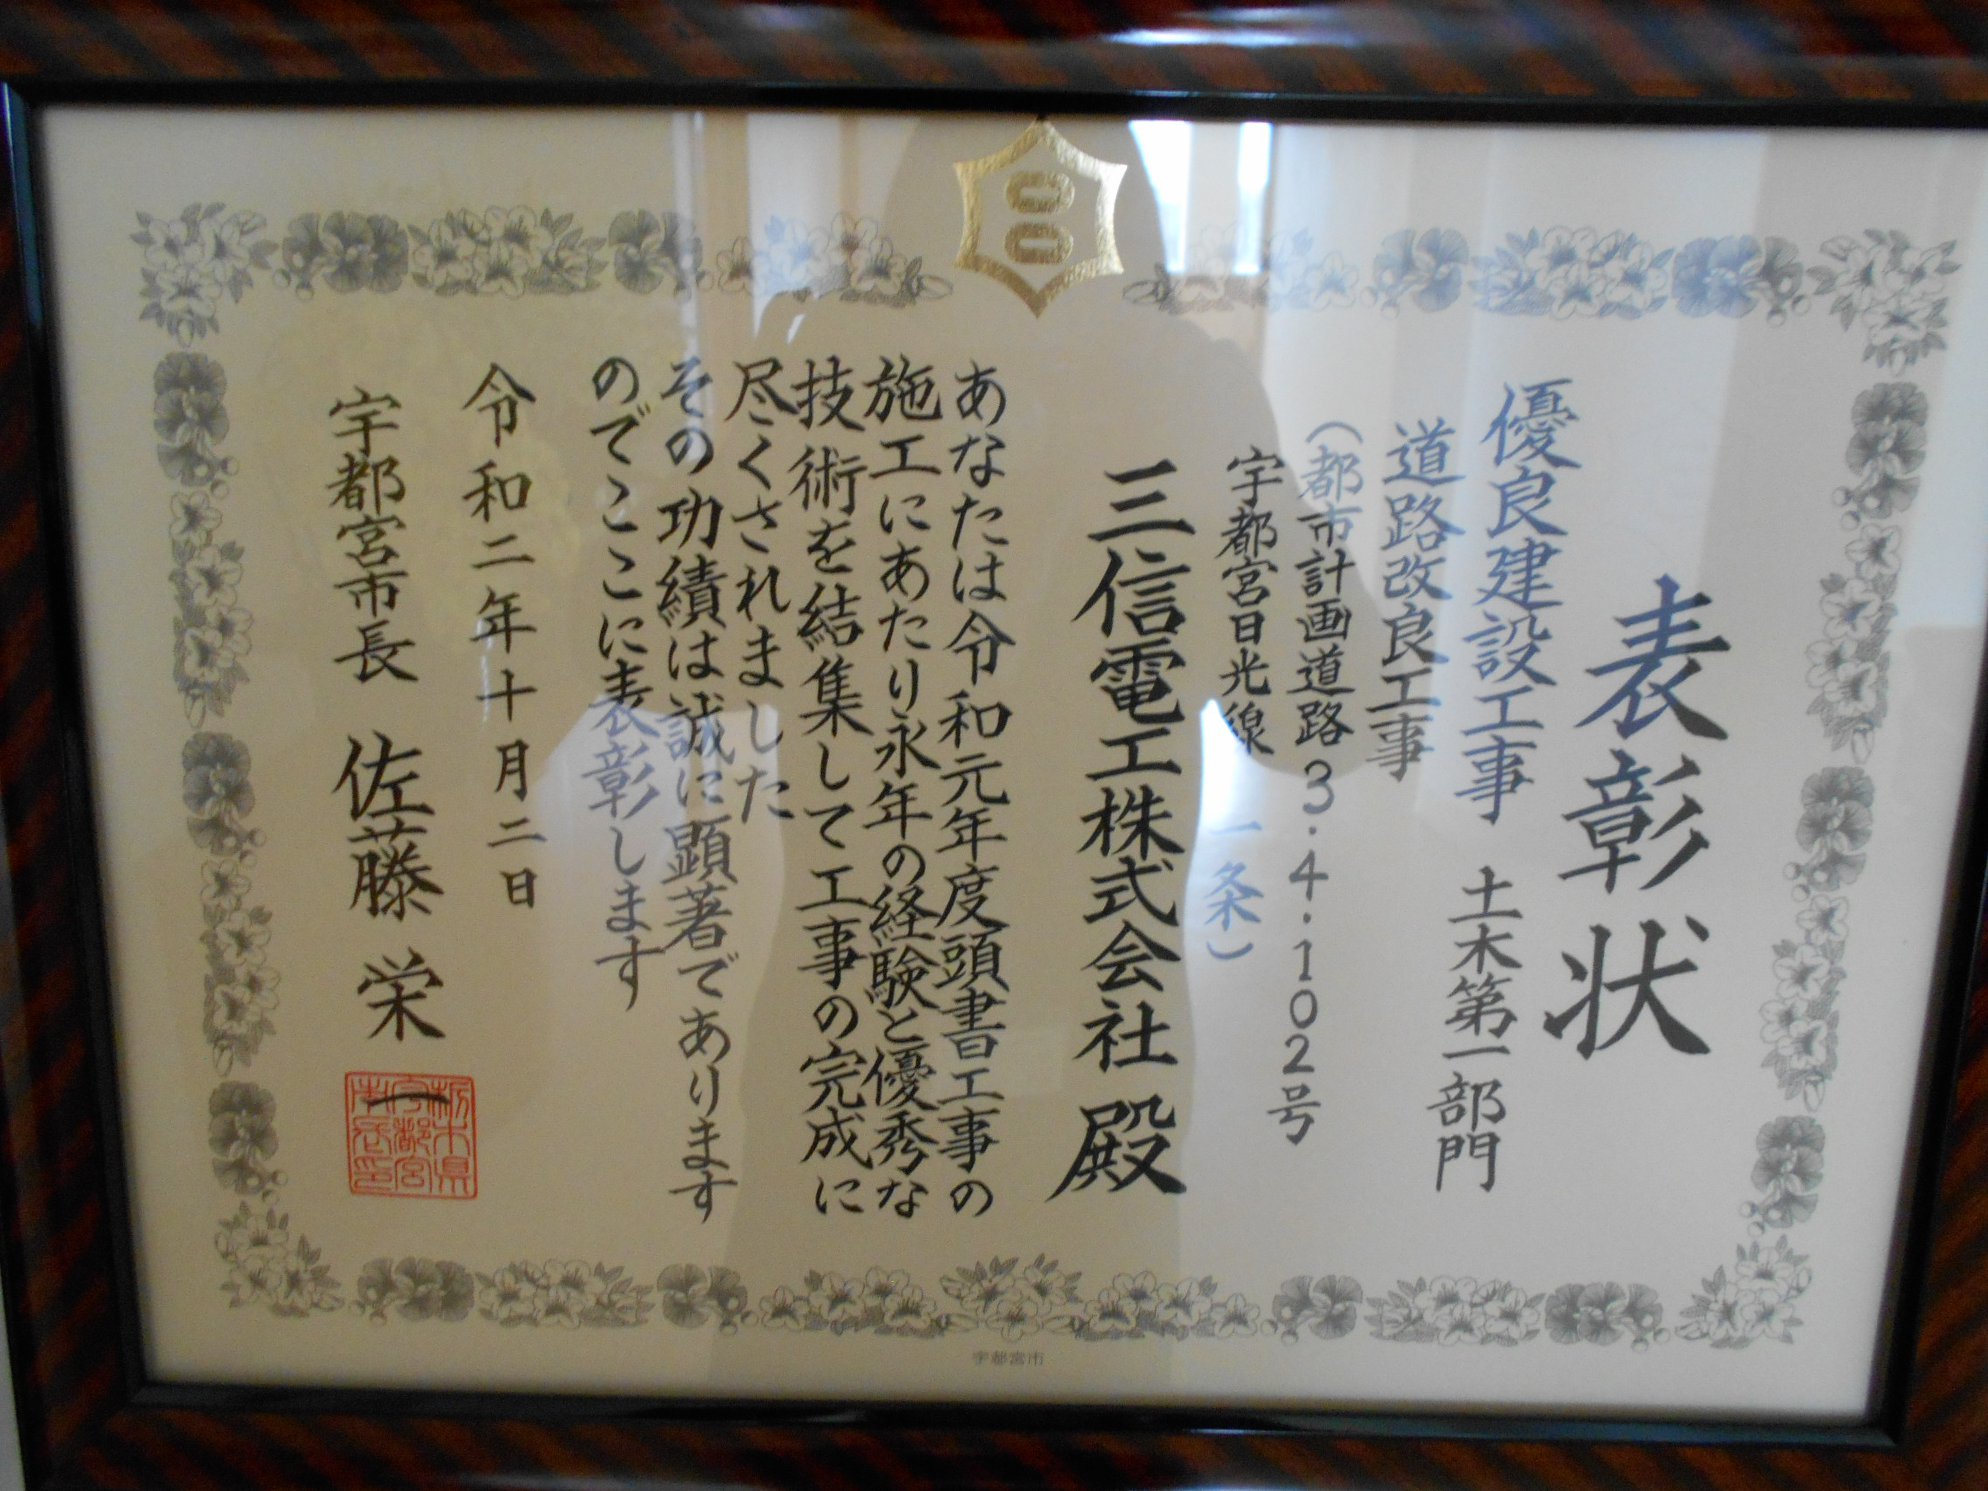 表彰状
優良建設工事 土木第一部門
道路改良工事
(都市計画道路3・4・102号
宇都宮日光線 一条)
三信電工株式会社 殿
あなたは令和元年度頭書工事の
施工にあたり永年の経験と優秀な
技術を結集して工事の完成に
尽くされました
その功績は誠に顕著であります
のでここに表彰します
令和二年十月二日
宇都宮市長 佐藤栄一
栃木県
宇都宮
市長印
宇都宮市